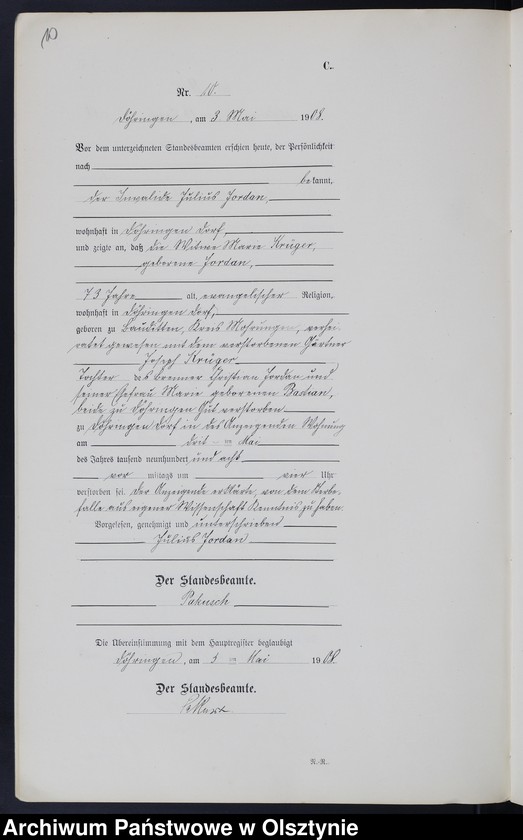 10
C.
Nr. 10.
Döhringen, am 3 Mai 1908.
Vor dem unterzeichneten Standesbeamten erschien heute, der Persönlichkeit
nach
bekannt,
der Invalide Julius Jordan,
wohnhaft in Döhringen Dorf,
und zeigte an, daß die Witwe Marie Krüger,
geborene Jordan,
73 Jahre alt, evangelischer Religion,
wohnhaft in Döhringen Dorf,
geboren zu Bauditten, Kreis Mohrungen, verhei-
ratet gewesen mit dem verstorbenen Gärtner
Joseph Krüger
Tochter des Brenner Christian Jordan und
seiner Ehefrau Marie geborenen Bastian,
beide zu Döhringen Gut verstorben
zu Döhringen Dorf in des Anzeigenden Wohnung
am Mai
des Jahres tausend neunhundert und acht
vor mittags um vier Uhr
verstorben sei. Der Anzeigende erklärte, von dem Sterbe-
falle aus eigener Wissenschaft Kenntnis zu haben.
Vorgelesen, genehmigt und unterschrieben
Julius Jordan
Der Standesbeamte.
Die Übereinstimmung mit dem Hauptregister beglaubigt
Döhringen, am Mai 1908
Der Standesbeamte.
R.-R.
Archiwum Państwowe w Olsztynie